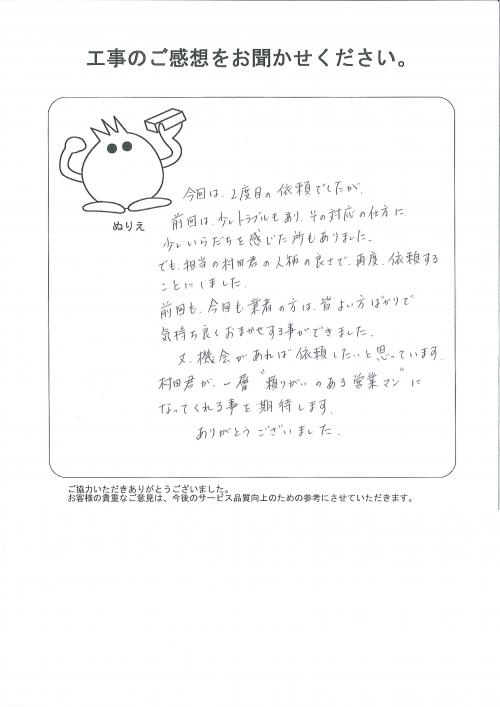 工事のご感想をお聞かせください。
ぬりえ
今回は、2度目の依頼でしたが、
前回は、少しトラブルもあり、その対応の仕方に
少しいらだちを感じた所もありました。
でも、担当の村田君の人柄の良さで、再度、依頼する
ことにしました。
前回も、今回も業者の方は、皆よい方ばかりで
気持ち良くおまかせする事ができました。
又、機会があれば依頼したいと思っています。
村田君が、一層〝頼りがいのある営業マン〟に
なってくれる事を期待します。
ありがとうございました。
ご協力いただきありがとうございました。
お客様の貴重なご意見は、今後のサービス品質向上のための参考にさせていただきます。